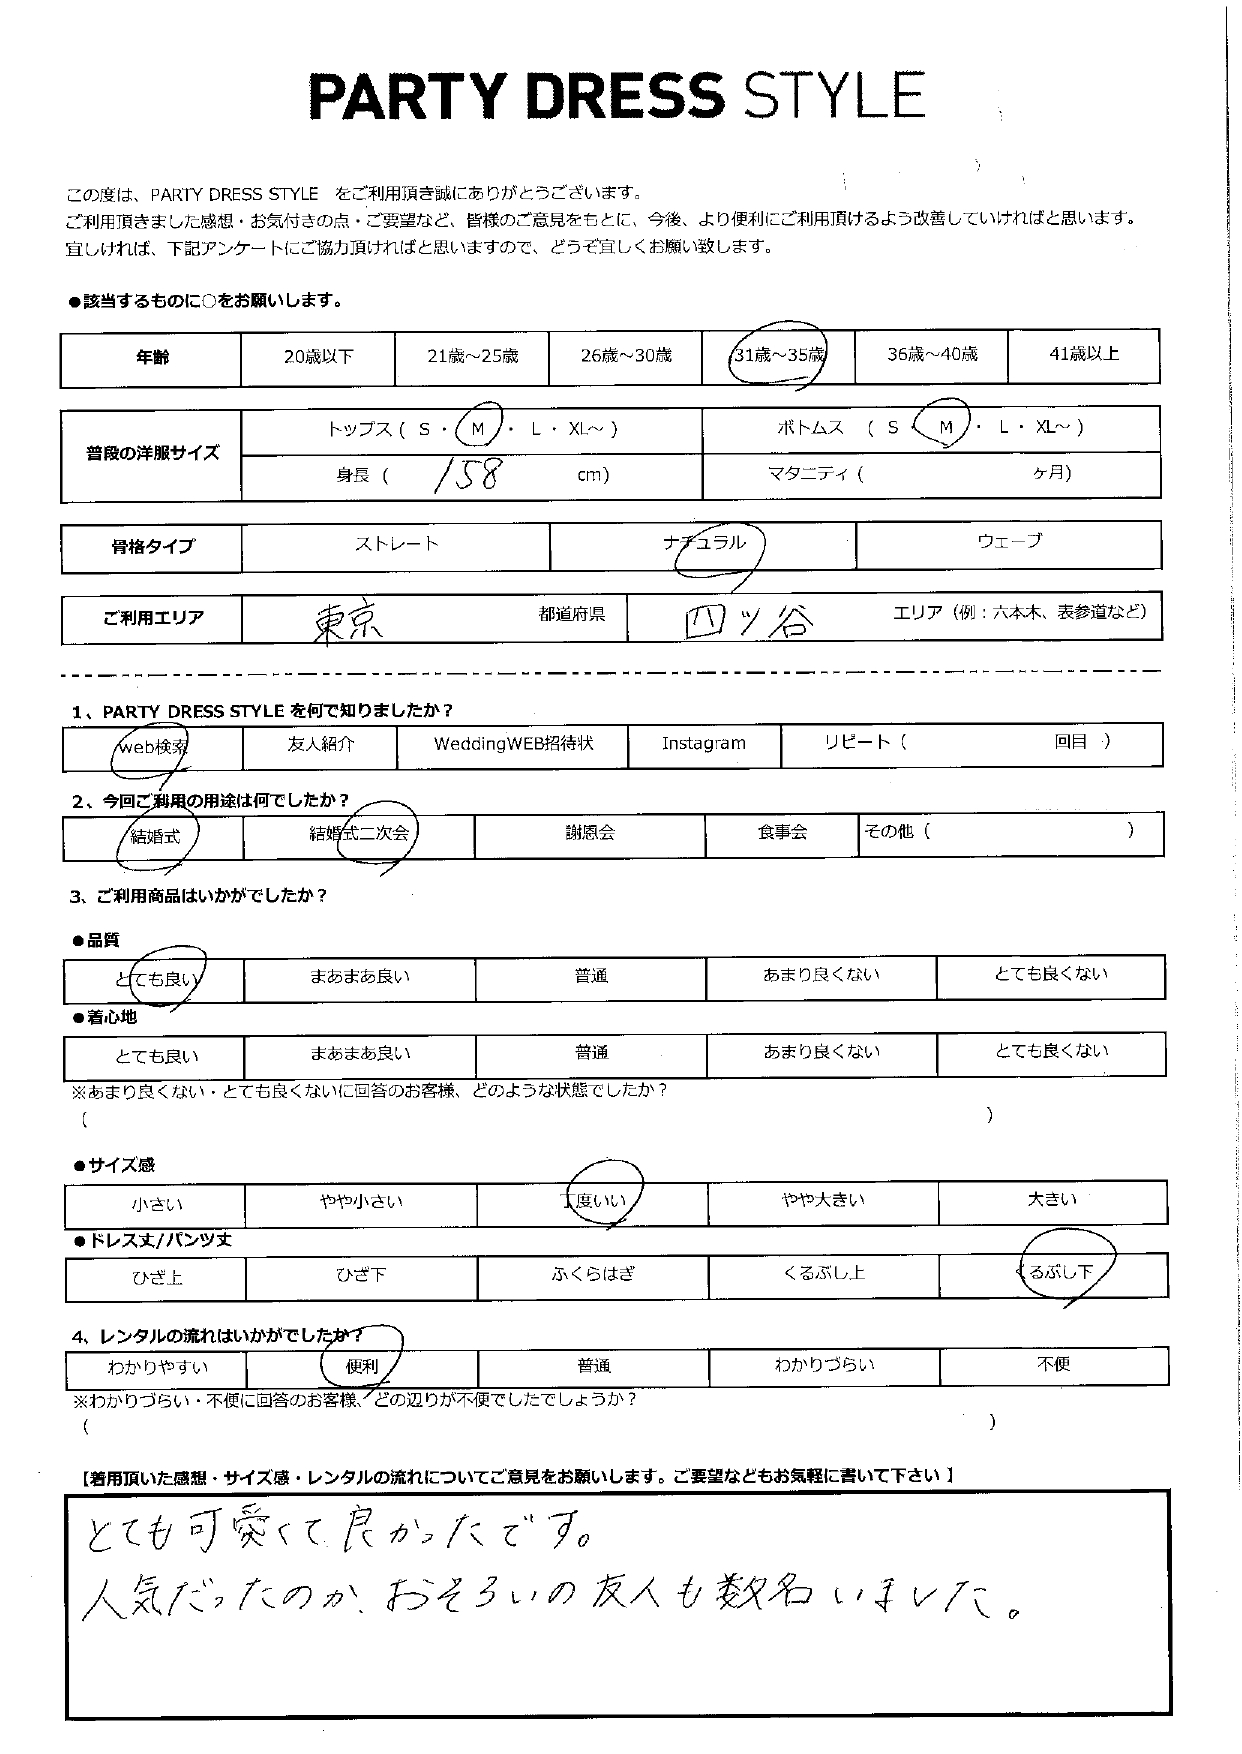 PARTY DRESS STYLE
この度は、PARTY DRESS STYLE をご利用頂き誠にありがとうございます。
ご利用頂きました感想・お気付きの点・ご要望など、皆様のご意見をもとに、今後、より便利にご利用頂けるよう改善していければと思います。
宜しければ、下記アンケートにご協力頂ければと思いますので、どうぞ宜しくお願い致します。
●該当するものに○をお願いします。
年齢 20歳以下 21歳～25歳 26歳～30歳 31歳～35歳 36歳～40歳 41歳以上
普段の洋服サイズ
トップス ( S ・ M ・ L ・ XL～ ) ボトムス ( S ・ M ・ L ・ XL～ )
身長 ( 158 cm) マタニティ ( ヶ月)
骨格タイプ ストレート ナチュラル ウェーブ
ご利用エリア 東京 都道府県 四ッ谷 エリア (例：六本木、表参道など)
1、PARTY DRESS STYLE を何で知りましたか？
web検索 友人紹介 WeddingWEB招待状 Instagram リピート ( 回目 )
2、今回ご利用の用途は何でしたか？
結婚式 結婚式二次会 謝恩会 食事会 その他 ( )
3、ご利用商品はいかがでしたか？
●品質
とても良い まあまあ良い 普通 あまり良くない とても良くない
●着心地
とても良い まあまあ良い 普通 あまり良くない とても良くない
※あまり良くない・とても良くないに回答のお客様、どのような状態でしたか？
( )
●サイズ感
小さい やや小さい 丁度いい やや大きい 大きい
●ドレス丈/パンツ丈
ひざ上 ひざ下 ふくらはぎ くるぶし上 くるぶし下
4、レンタルの流れはいかがでしたか？
わかりやすい 便利 普通 わかりづらい 不便
※わかりづらい・不便に回答のお客様、どの辺りが不便でしたでしょうか？
( )
【着用頂いた感想・サイズ感・レンタルの流れについてご意見をお願いします。ご要望などもお気軽に書いて下さい】
とても可愛くて良かったです。
人気だったのか、おそろいの友人も数名いました。